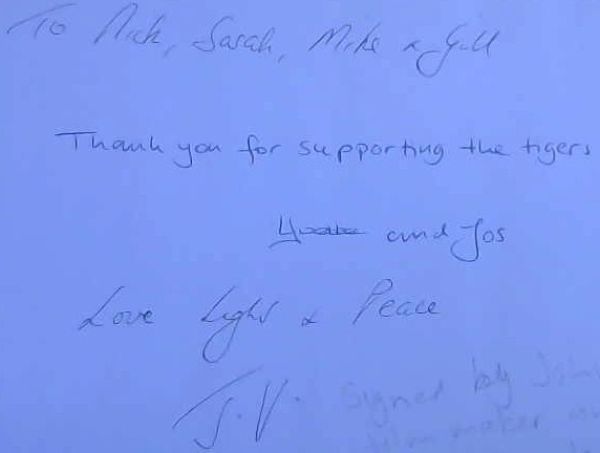 To Nick, Sarah, Mike & Gill
Thank you for supporting the tigers
and Jos
Love Light & Peace
J.V.
signed by John
film maker